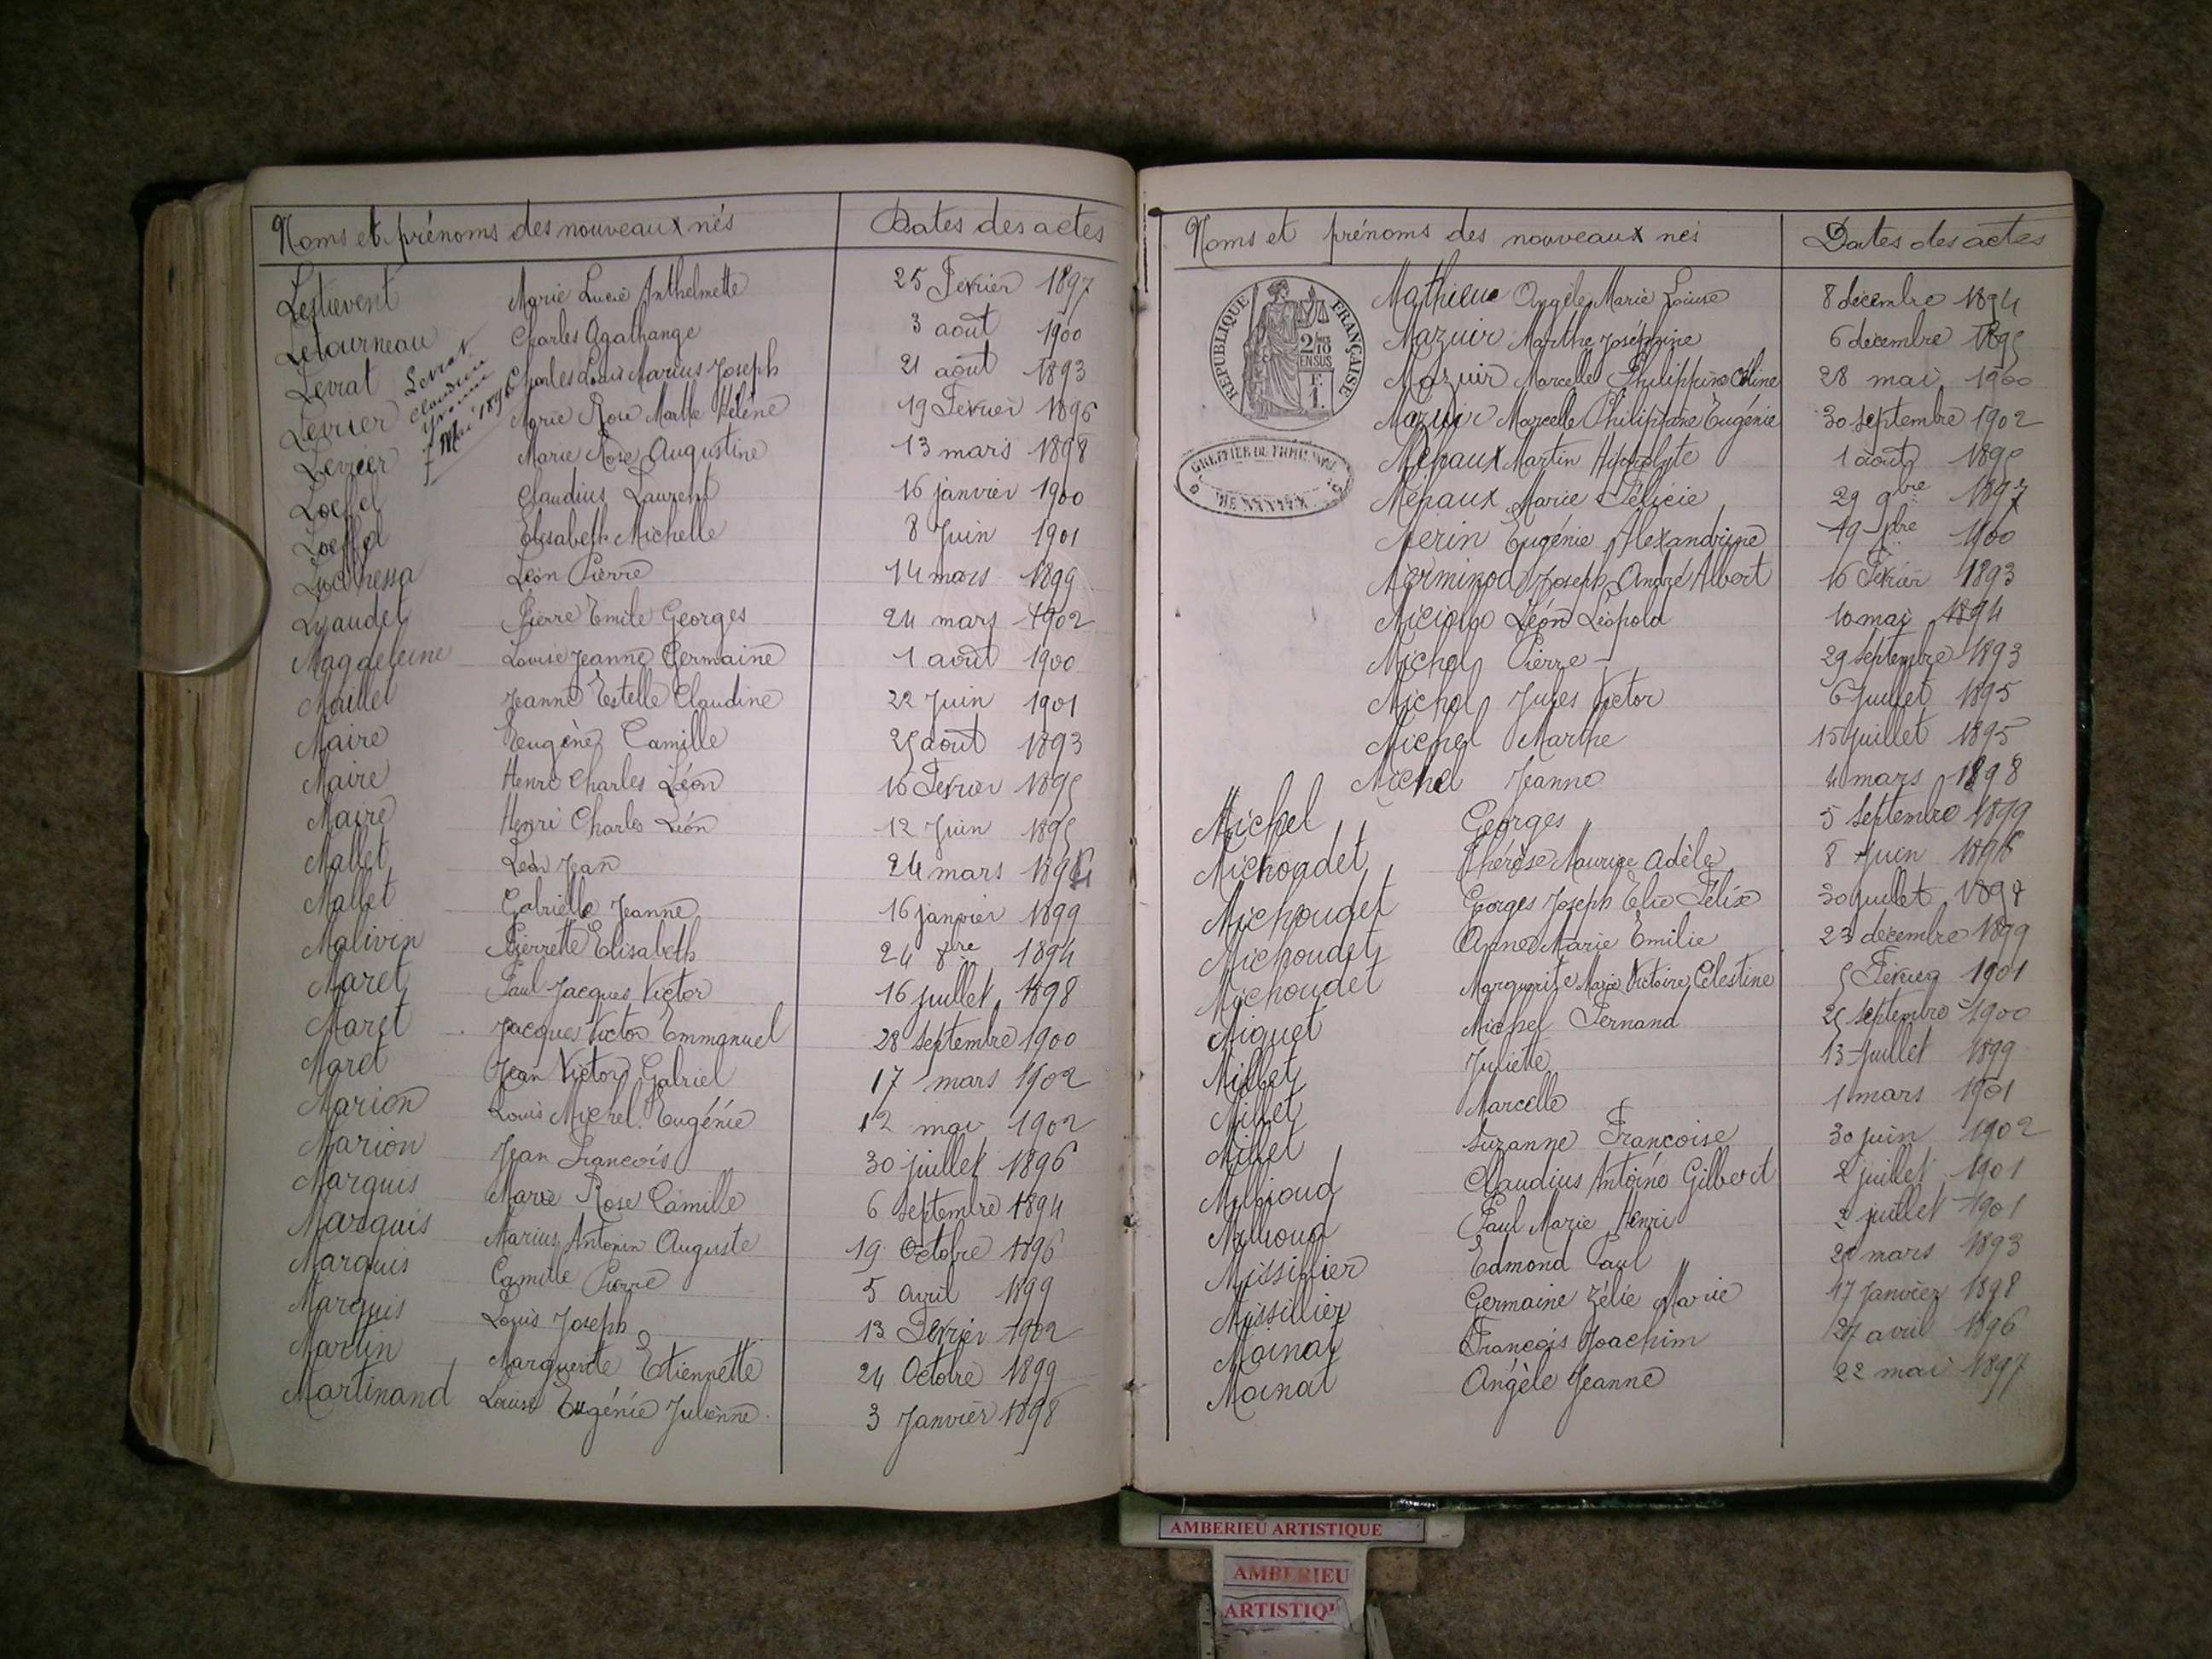 Noms et prénoms des nouveaux nés Dates des actes
Lestievent Marie Lucie Anthelmette 25 Fevrier 1897
Letourneau Charles Agathange 3 aout 1900
Levrat Charles Louis Marius Joseph 21 aout 1893
Levrat Claudius
Mai 1896
Levrier Marie Rose Marthe Hélène 19 Fevrier 1896
Levrier Marie Rose Augustine 13 mars 1898
Loeffel Claudius Laurent 16 janvier 1900
Loeffel Elisabeth Michelle 8 Juin 1901
Lucchessa Léon Pierre 14 mars 1899
Lyaudet Pierre Emile Georges 24 mars 1902
Magdeleine Louise Jeanne Germaine 1 aout 1900
Maillet Jeanne Estelle Claudine 22 Juin 1901
Maire Eugène Camille 25 aout 1893
Maire Henri Charles Léon 16 Fevrier 1895
Maire Henri Charles Léon 12 Juin 1895
Mallet Léon Jean 24 mars
Mallet Gabrielle Jeanne 16 janvier 1899
Malivin Pierrette Elisabeth 24 8bre 1894
Maret Paul Jacques Victor 16 juillet 1898
Maret Jacques Victor Emmanuel 28 Septembre 1900
Maret Jean Victor Gabriel 17 mars 1902
Marion Louis Michel Eugénie 12 mai 1902
Marion Jean Francois 30 juillet 1896
Marquis Marie Rose Camille 6 Septembre 1894
Marquis Marius Antonin Auguste 19 Octobre 1896
Marquis Camille Pierre 5 avril 1899
Marquis Louis Joseph 13 Fevrier 1902
Martin Marguerite Etiennette 24 Octobre 1899
Martinand Louise Eugénie Julienne 3 Janvier 1898
Noms et prénoms des nouveaux nés Dates des actes
REPUBLIQUE FRANÇAISE
2/10 EN SUS
F. 1.
GREFFIER DU TRIBUNAL
DE NANTUA
Mathieu Angèle Marie Louise 8 décembre 1894
Mazuir Marthe Joséphine 6 decembre 1895
Mazuir Marcelle Philippine Céline 28 mai 1900
Mazuir Marcelle Philippine Eugénie 30 Septembre 1902
Mépaux Martin Hippolyte 1 aout 1895
Mépaux Marie Félicie 29 9bre 1897
Merin Eugénie Alexandrine 19 1900
Merminod Joseph André Albert 16 Fevrier 1893
Léon Léopold 10 mai 1894
Michel Pierre 29 Septembre 1893
Michel Jules Victor 6 Juillet 1895
Michel Marthe 15 juillet 1895
Michel Jeanne 4 mars 1898
Michel Georges 5 Septembre 1899
Michoudet Thérèse Maurice Adèle 8 Juin 1896
Michoudet Georges Joseph Elie Félix 30 juillet 1897
Michoudet Anne Marie Emilie 23 decembre 1899
Michoudet Marguerite Marie Victoire Célestine 5 Février 1901
Miguet Michel Fernand 25 Septembre 1900
Millet Juliette 13 Juillet 1899
Millet Marcelle 1 mars 1901
Millet Suzanne Francoise 30 Juin 1902
Millioud Claudius Antoine Gilbert 2 juillet 1901
Millioud Paul Marie Henri 2 juillet 1901
Missillier Edmond Paul mars 1893
Missillier Germaine Zélie Marie 17 Janvier 1898
Moinat François Joachim 27 avril 1896
Moinat Angèle Jeanne 22 mai 1897
AMBERIEU ARTISTIQUE
AMBERIEU
ARTISTIQU